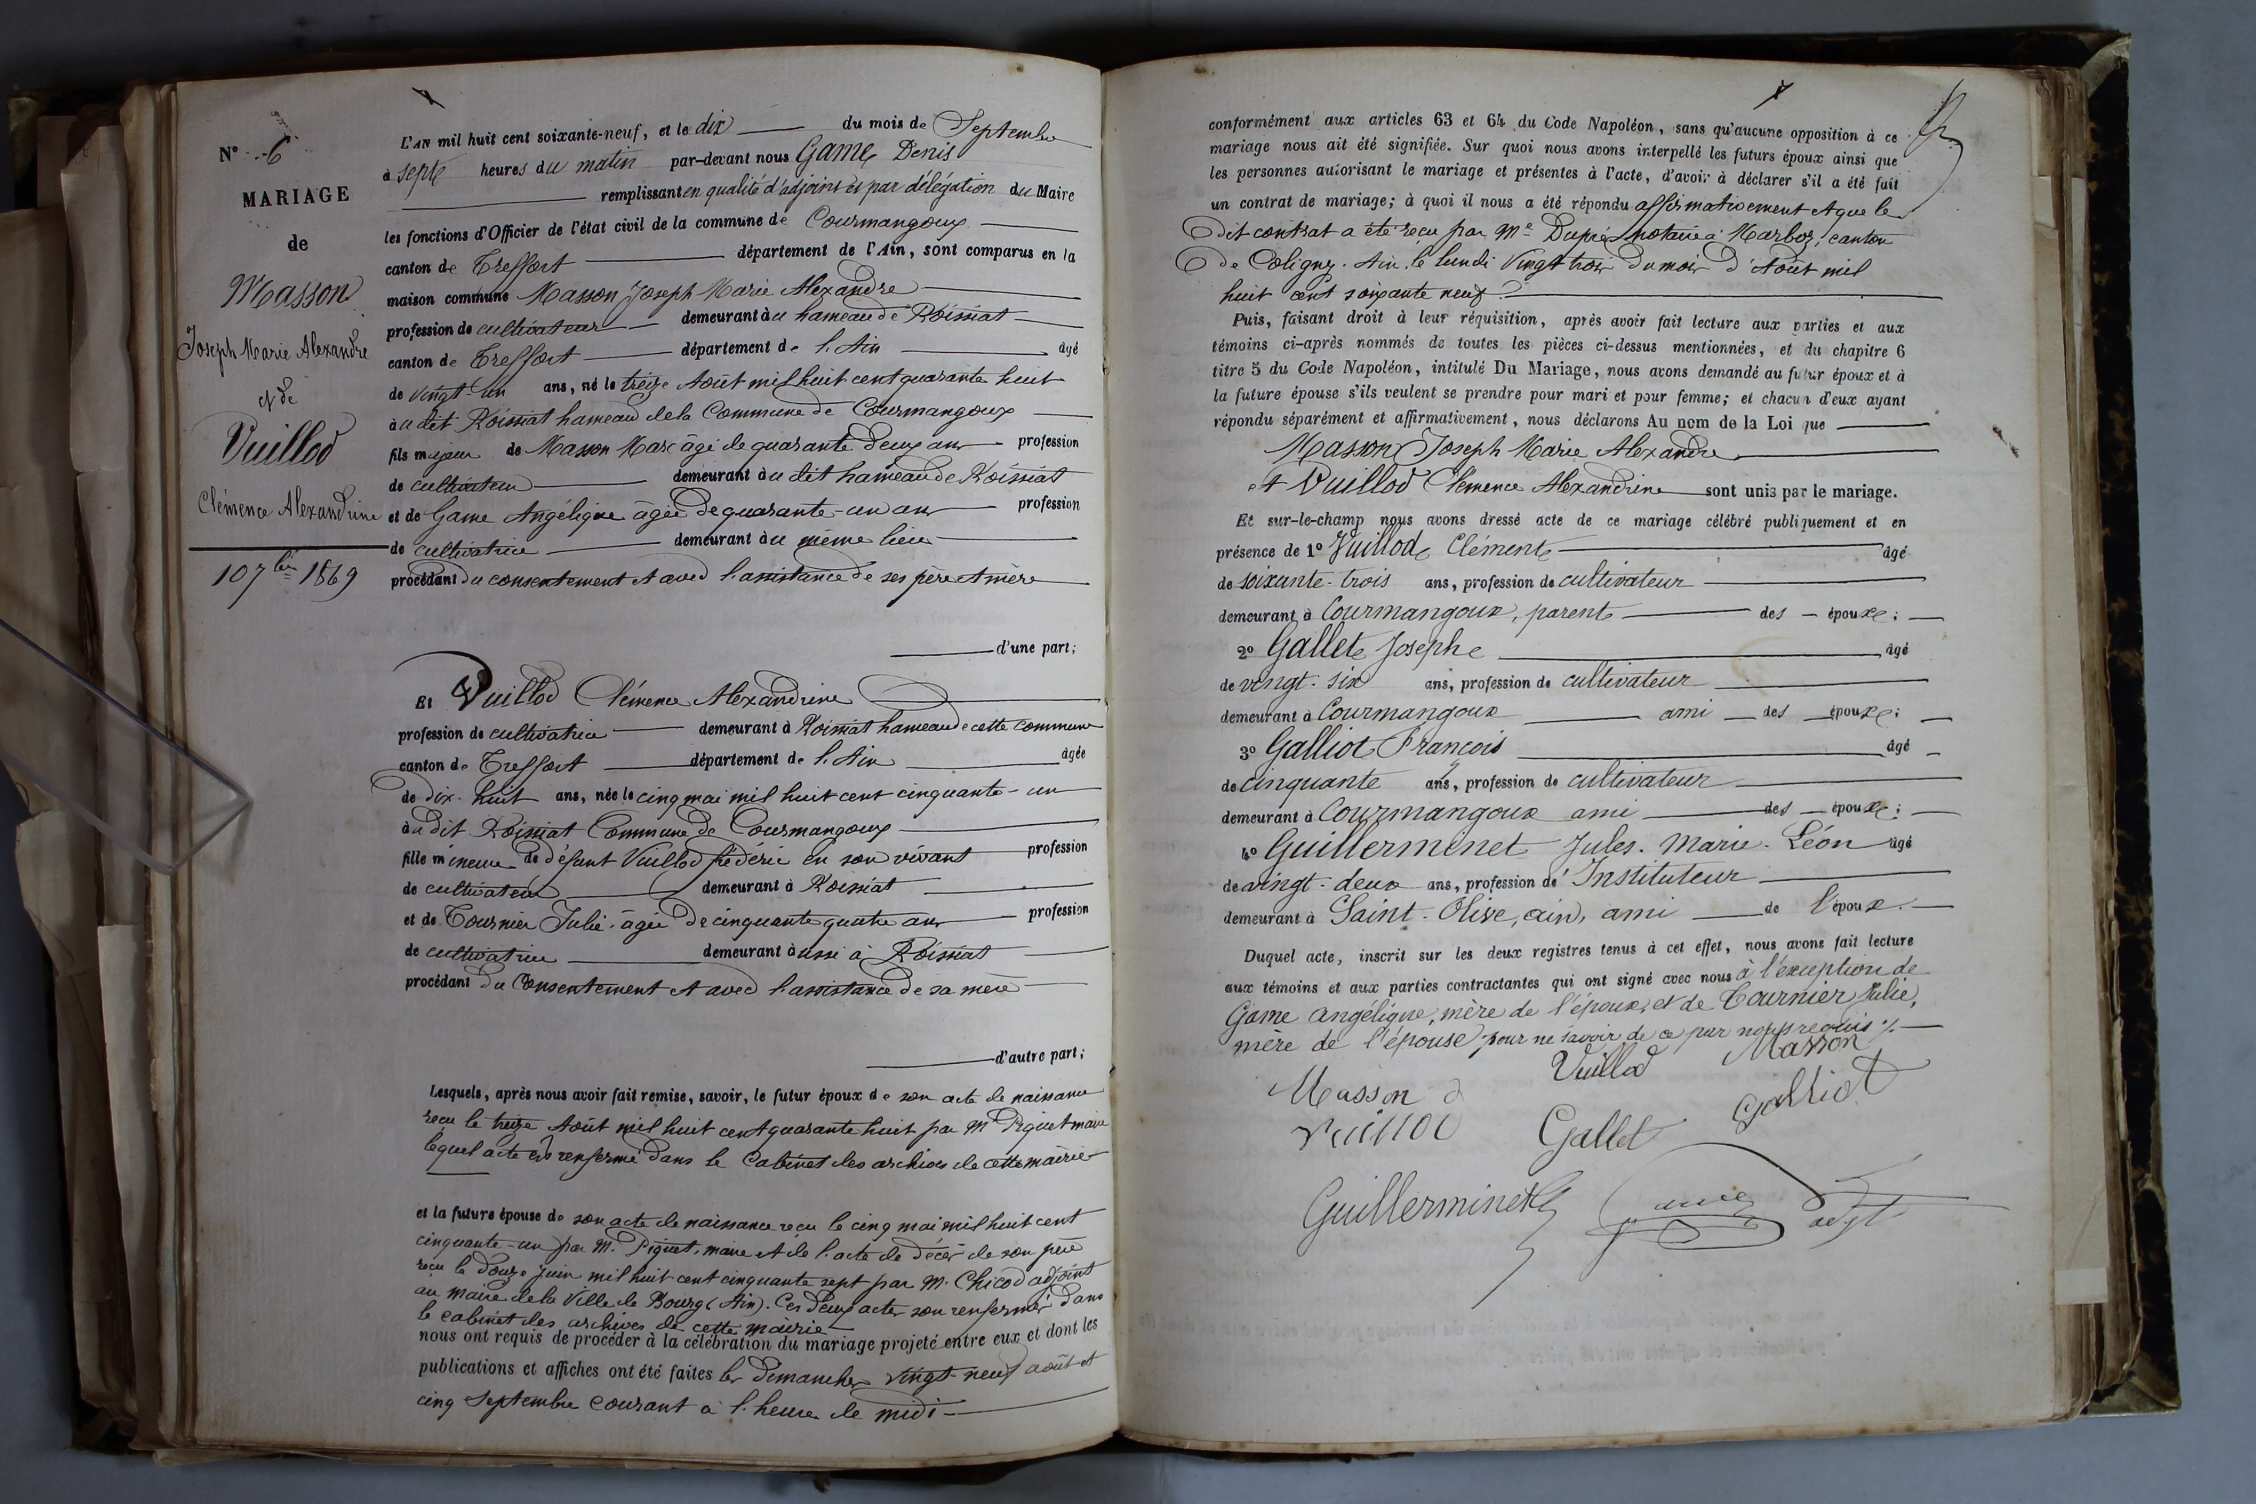 N° 6
MARIAGE
de
Masson
Joseph Marie Alexandre
et de
Vuillod
Clémence Alexandrine
10 7bre 1869
L'AN mil huit cent soixante-neuf, et le dix du mois de Septembre
à sept heures du matin par-devant nous Game Denis
remplissant en qualité d'adjoint et par délégation du Maire
les fonctions d'Officier de l'état civil de la commune de Courmangoux
canton de Treffort département de l'Ain, sont comparus en la
maison commune Masson Joseph Marie Alexandre
profession de cultivateur demeurant au hameau de Roissiat
canton de Treffort département de l'Ain âgé
de vingt-un ans, né le treize Août mil huit cent quarante huit
au dit Roissiat hameau de la Commune de Courmangoux
fils majeur de Masson Marc âgé de quarante deux ans profession
de cultivateur demeurant au dit hameau de Roissiat
et de Game Angélique âgée de quarante-un ans profession
de cultivatrice demeurant au même lieu
procédant du consentement et avec l'assistance de ses père et mère
d'une part;
Et Vuillod Clémence Alexandrine
profession de cultivatrice demeurant à Roissiat hameau de cette commune
canton de Treffort département de l'Ain âgée
de dix-huit ans, née le cinq mai mil huit cent cinquante-un
au dit Roissiat Commune de Courmangoux
fille mineure de défunt Vuillod frédéric en son vivant profession
de cultivateur demeurant à Roissiat
et de Tournier Julie âgée de cinquante quatre ans profession
de cultivatrice demeurant aussi à Roissiat
procédant du Consentement et avec l'assistance de sa mère
d'autre part;
Lesquels, après nous avoir fait remise, savoir, le futur époux de son acte de naissance
reçu le treize Août mil huit cent quarante huit par Mr Piquet maire
lequel acte est renfermé dans le Cabinet des archives de cette mairie
et la future épouse de son acte de naissance reçu le cinq mai mil huit cent
cinquante-un par M. Piquet, maire et de l'acte de décès de son père
reçu le douze juin mil huit cent cinquante sept par M. Chicod adjoint
au maire de la Ville de Bourg (Ain). Ces deux actes son renfermés dans
le cabinet des archives de cette mairie
nous ont requis de procéder à la célébration du mariage projeté entre eux et dont les
publications et affiches ont été faites les Dimanches vingt neuf août et
cinq Septembre courant à l'heure de midi
conformément aux articles 63 et 64 du Code Napoléon, sans qu'aucune opposition à ce
mariage nous ait été signifiée. Sur quoi nous avons interpellé les futurs époux ainsi que
les personnes autorisant le mariage et présentes à l'acte, d'avoir à déclarer s'il a été fait
un contrat de mariage; à quoi il nous a été répondu affirmativement et que le
dit contrat a été reçu par Me Dupré notaire à Marboz, canton
de Coligny. Ain, le lundi Vingt trois du mois d'Août mil
huit cent soixante neuf.
Puis, faisant droit à leur réquisition, après avoir fait lecture aux parties et aux
témoins ci-après nommés de toutes les pièces ci-dessus mentionnées, et du chapitre 6
titre 5 du Code Napoléon, intitulé Du Mariage, nous avons demandé au futur époux et à
la future épouse s'ils veulent se prendre pour mari et pour femme; et chacun d'eux ayant
répondu séparément et affirmativement, nous déclarons Au nom de la Loi que
Masson Joseph Marie Alexandre
et Vuillod Clemence Alexandrine sont unis par le mariage.
Et sur-le-champ nous avons dressé acte de ce mariage célébré publiquement et en
présence de 1° Vuillod Clément âgé
de soixante-trois ans, profession de cultivateur
demeurant à Courmangoux, parent des époux;
2° Gallet Joseph âgé
de vingt-six ans, profession de cultivateur
demeurant à Courmangoux ami des époux;
3° Galliot François âgé
de cinquante ans, profession de cultivateur
demeurant à Courmangoux ami des époux;
4° Guillermenet Jules. Marie. Léon âgé
de vingt-deux ans, profession de Instituteur
demeurant à Saint-Olive, ain, ami de l'époux.
Duquel acte, inscrit sur les deux registres tenus à cet effet, nous avons fait lecture
aux témoins et aux parties contractantes qui ont signé avec nous à l'exception de
Game Angélique, mère de l'époux, et de Tournier Julie,
mère de l'épouse pour ne savoir de ce par nous requis ./.
Vuillod Masson
Masson
Vuillod Gallet Galliot
Guillerminet Game adjt